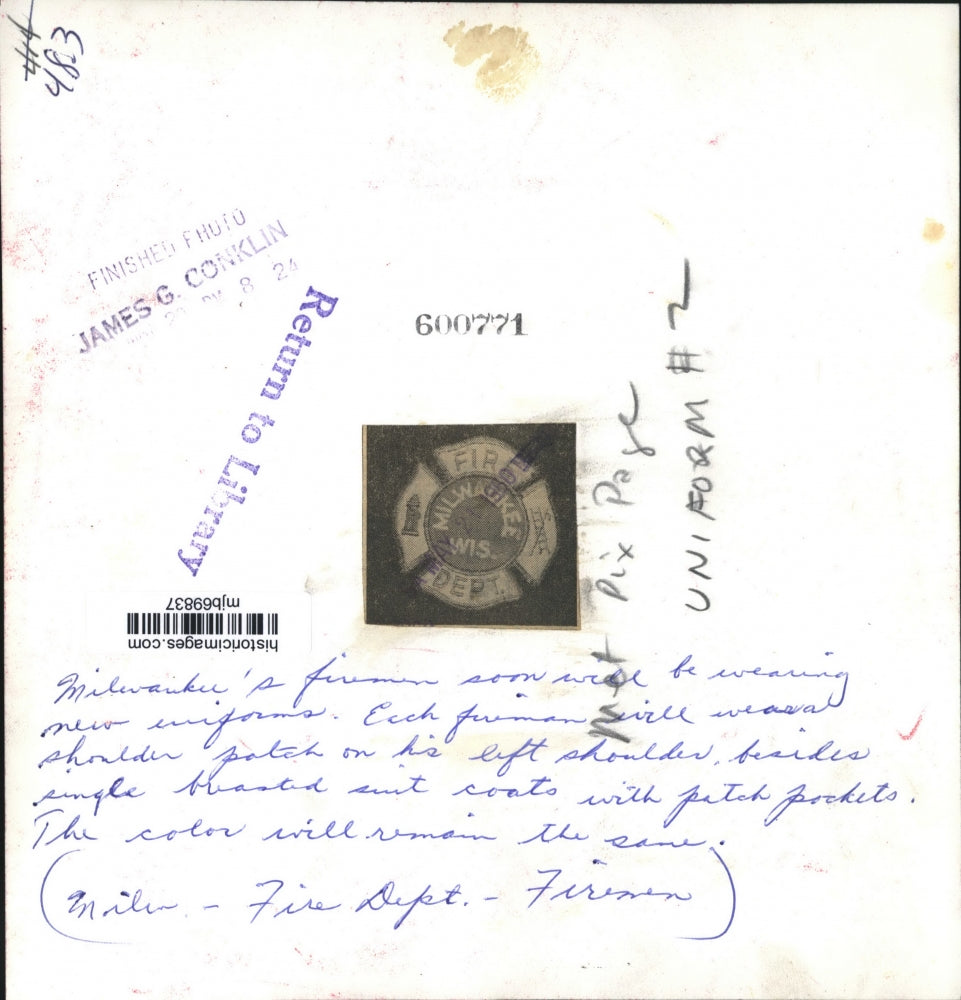 44
483
FINISHED PHOTO
JAMES G. CONKLIN
8 24
Return to Library
600771
UNIFORM # 2
Pix Page
FIRE
MILWAUKEE
WIS.
DEPT.
historicimages.com
mjb69837
Milwaukee's firemen soon will be wearing
new uniforms. Each fireman will wear a
shoulder patch on his left shoulder, besides
single breasted suit coats with patch pockets.
The color will remain the same.
(Milw. - Fire Dept. - Firemen)